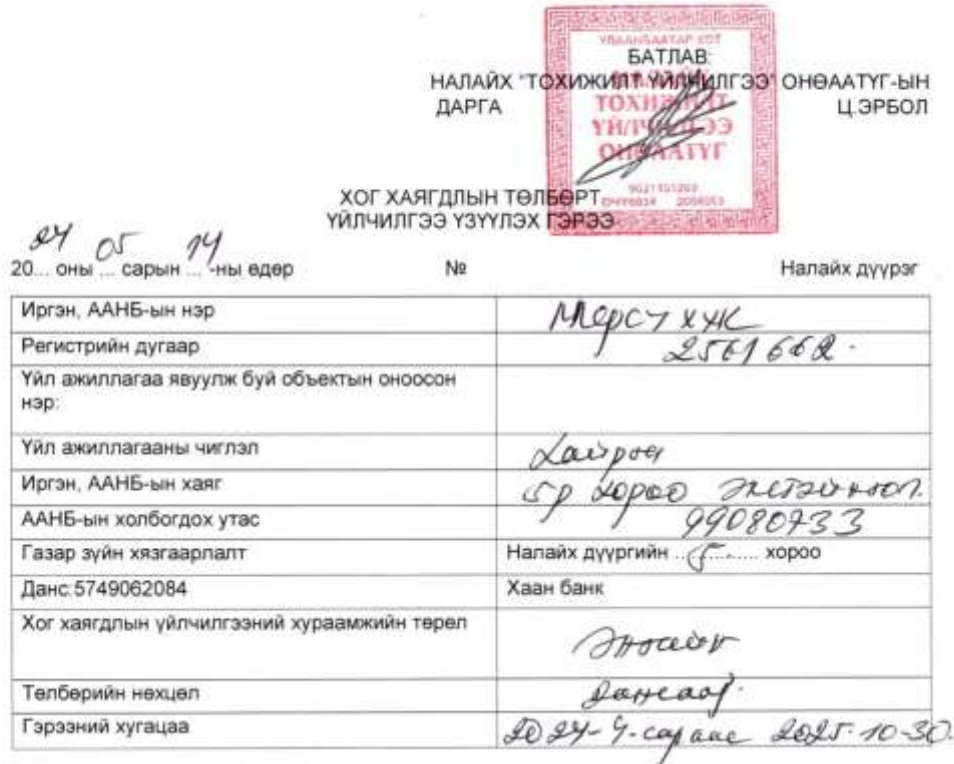 УЛААНБААТАР ХОТ
БАТЛАВ:
НАЛАЙХ "ТОХИЖИЛТ ҮЙЛЧИЛГЭЭ" ОНӨААТҮГ-ЫН
ДАРГА Ц.ЭРБОЛ
ТОХИЖИЛТ
ҮЙЛЧИЛГЭЭ
ОНӨААТҮГ
ХОГ ХАЯГДЛЫН ТӨЛБӨРТ
ҮЙЛЧИЛГЭЭ ҮЗҮҮЛЭХ ГЭРЭЭ
2024 оны 05 сарын 14 -ны өдөр № Налайх дүүрэг
Иргэн, ААНБ-ын нэр Мерсу ххк
Регистрийн дугаар 2561662.
Үйл ажиллагаа явуулж буй объектын оноосон
нэр:
Үйл ажиллагааны чиглэл Хайрга
Иргэн, ААНБ-ын хаяг 5р хороо
ААНБ-ын холбогдох утас 99080733
Газар зүйн хязгаарлалт Налайх дүүргийн ...5...... хороо
Данс:5749062084 Хаан банк
Хог хаягдлын үйлчилгээний хураамжийн төрөл Энгийн
Төлбөрийн нөхцөл Дансаар.
Гэрээний хугацаа 2024-4-сараас 2025-10-30.